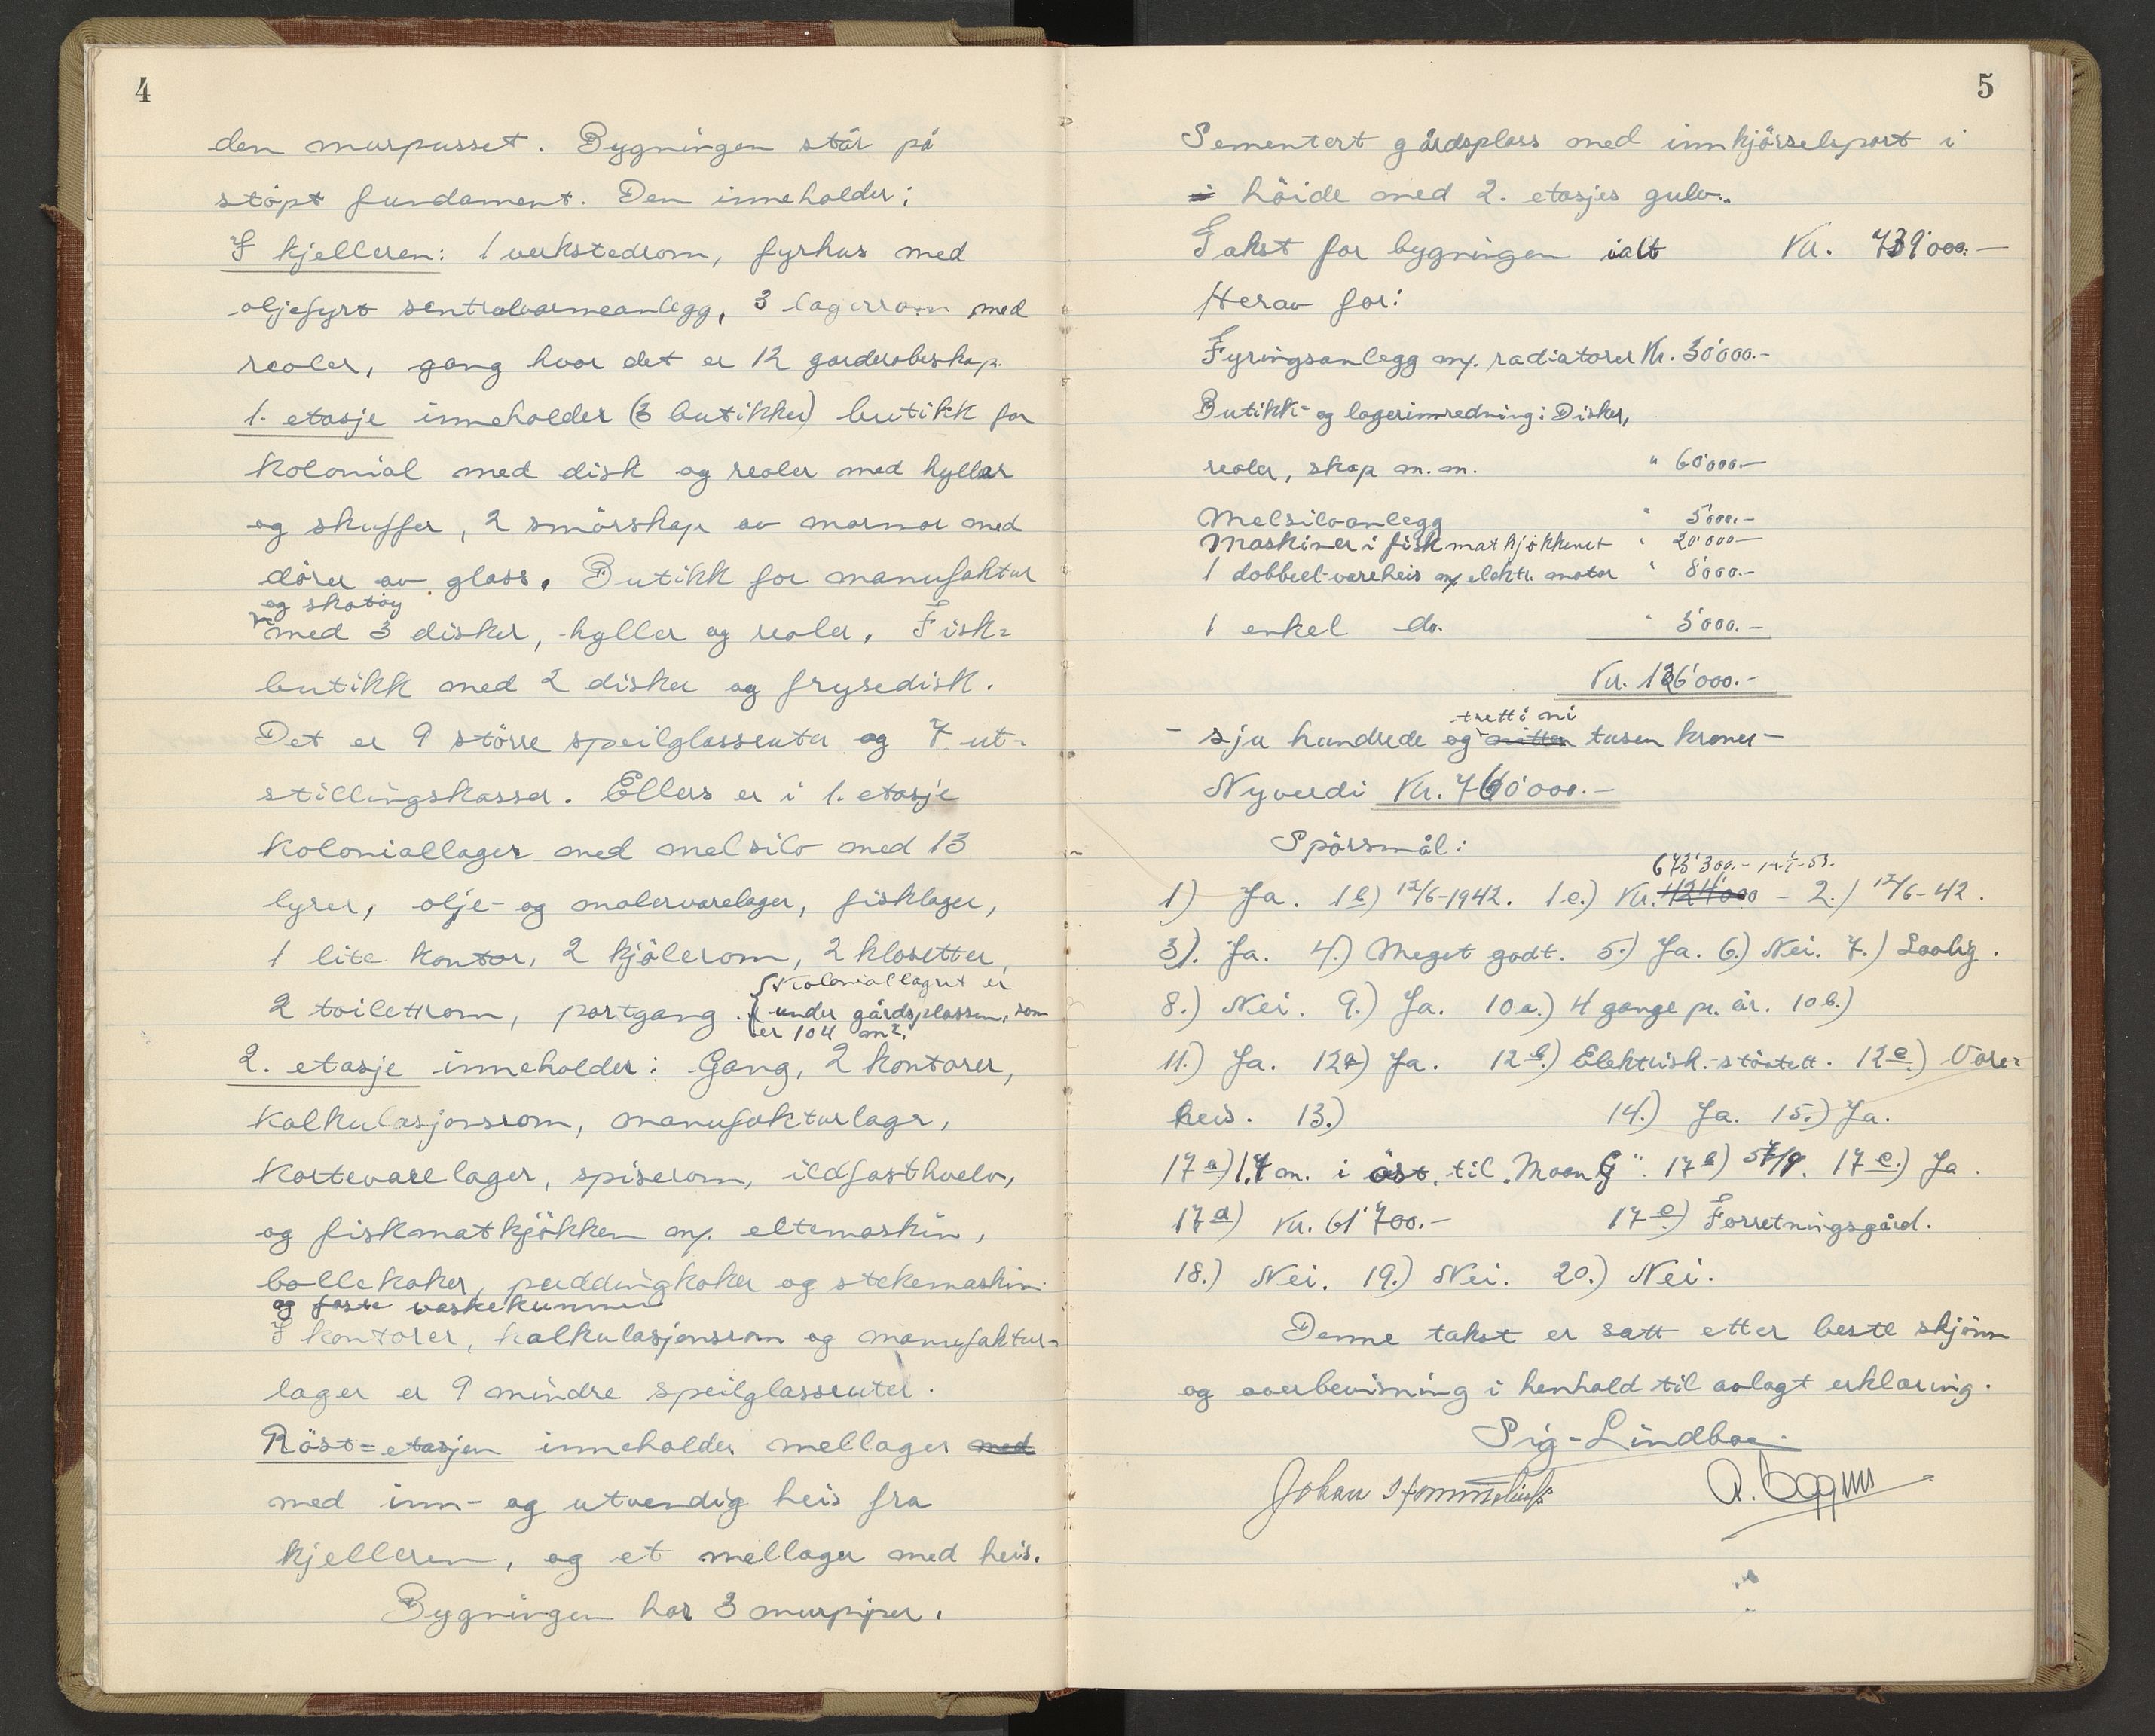 4
den murpusset. Bygningen står på
støpt fundament. Den inneholder:
I kjelleren: 1 verkstedrom, fyrhus med
oljefyrt sentralvarmeanlegg, 3 lagerrom med
reoler, gang hvor det er 12 garderobeskap.
1. etasje inneholder (3 butikker) butikk for
kolonial med disk og reoler med hyller
og skuffer, 2 smörskap av marmor med
dörer av glass. Butikk for manufaktur
og skotøy
med 3 disker, hyller og reoler. Fisk=
butikk med 2 disker og frysedisk.
Det er 9 större speilglassruter og 7 ut-
stillingskasser. Ellers er i 1. etasje
koloniallager med melsilo med 13
lyrer, olje- og malervarelager, fisklager,
1 lite kontor, 2 kjölerom, 2 klosetter,
Koloniallagret er
2 toilettrom, portgang. under gårdsplassen, som
er 104 m2.
2. etasje inneholder: Gang, 2 kontorer,
kalkulasjonsrom, manufakturlager,
kortevarelager, spiserom, ildfasthvelv,
og fiskmatkjökken m/. eltemaskin,
bollekoker, puddingkoker og stekemaskin.
og faste vaskekummer
I kontorer, kalkulasjonsrom og manufaktur=
lager er 9 mindre speilglassruter.
Röst=etasjen inneholder mellager med
med inn- og utvendig heis fra
kjelleren, og et mellager med heis.
Bygningen har 3 murpiper.
5
Sementert gårdsplass med innkjörselsport i
i höide med 2. etasjes gulv.
Takst for bygningen ialt Kr. 739'000.-
Herav for:
Fyringsanlegg m/. radiatorer Kr. 30'000.-
Butikk- og lagerinnredning: Disker,
reoler, skap m.m. " 60'000.-
Melsiloanlegg " 5'000.-
Maskiner i fiskmatkjökkenet " 20'000.-
1 dobbelt vareheis m/ elektr. motor " 8'000.-
1 enkel do. " 3'000.-
Kr. 126'000.-
tretti ni
- sju hundrede og nitten tusen kroner -
Nyverdi Kr. 760'000.-
Spörsmål:
673'300.-
1) Ja. 1b) 12/6-1942. 1c.) Kr. 424'000 - 2.) 12/6-42.
3). Ja. 4.) Meget godt. 5.) Ja. 6.) Nei. 7.) Lovlig.
8.) Nei. 9.) Ja. 10a.) 4 gange pr. år. 10b.)
11.) Ja. 12a) Ja. 12b.) Elektrisk. støvtett. 12c.) Vare=
heis. 13.) 14.) Ja. 15.) Ja.
17a) 1,7 m. i öst, til "Moen G". 17b) 17c.) Ja.
17d) Kr. 61'700.- 17e) Forretningsgård.
18.) Nei. 19.) Nei. 20.) Nei.
Denne takst er satt etter beste skjönn
og overbevisning i henhold til avlagt erklæring.
Sig. Lindboe.
Johan